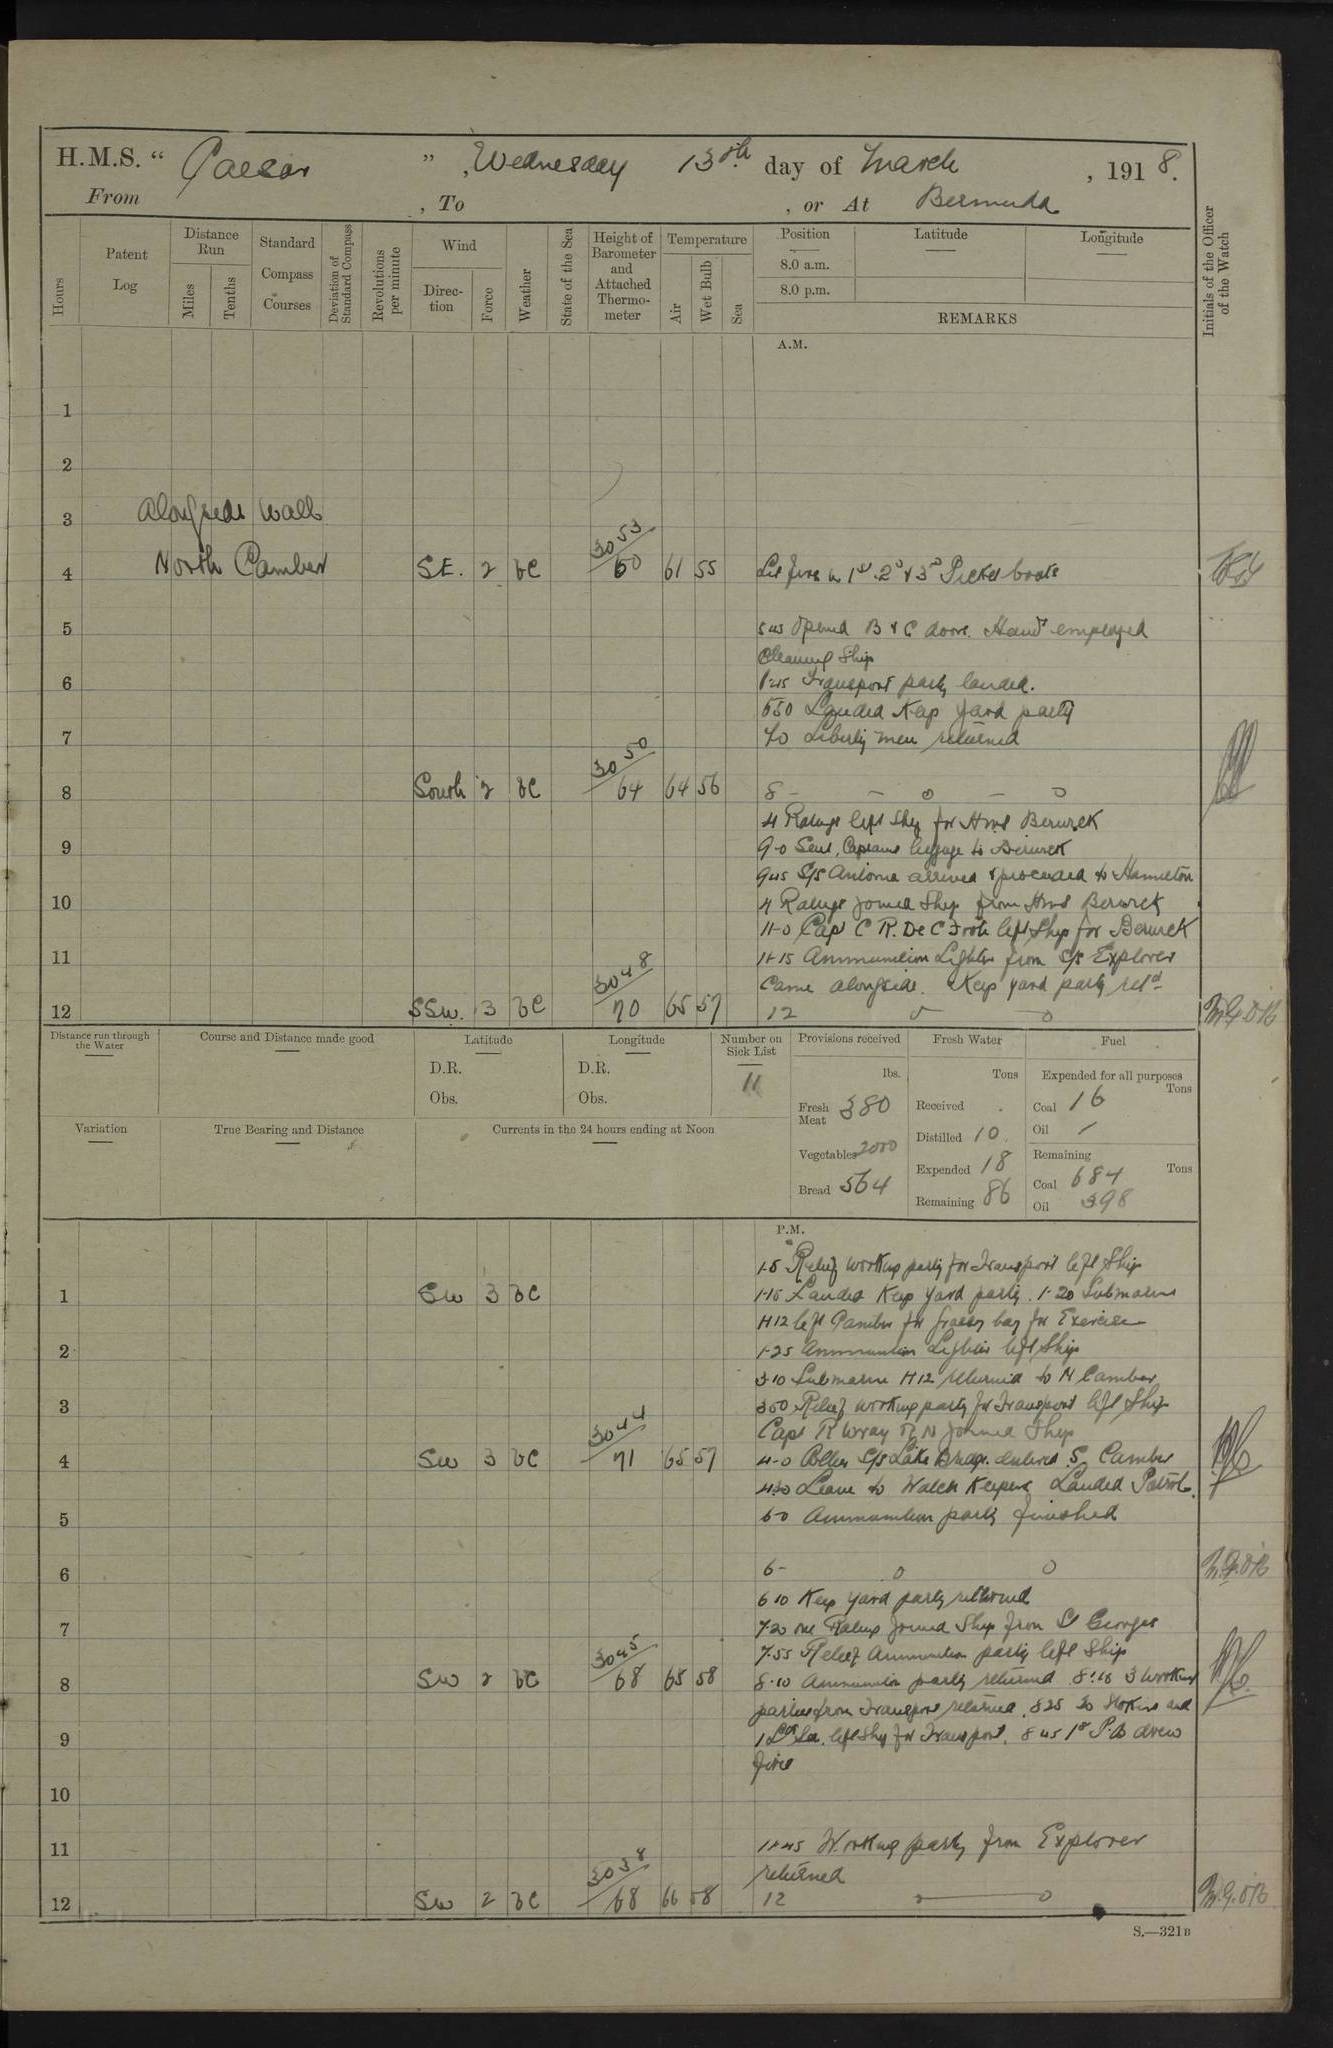 H.M.S. " Caesar ", Wednesday 13th day of March, 1918.
From , To , or At Bermuda
Hours
Patent Log
Distance Run
Miles
Tenths
Standard Compass Courses
Deviation of Standard Compass
Revolutions per minute
Wind
Direction
Force
Weather
State of the Sea
Height of Barometer and Attached Thermometer
Temperature
Air
Wet Bulb
Sea
Position
8.0 a.m.
8.0 p.m.
Latitude
Longitude
REMARKS
Initials of the Officer of the Watch
A.M.
1
2
3 Alongside Wall
4 North Camber SE. 2 bc 3053/60 61 55 Lit fires in 1st 2d & 3rd Picket boats
5 5 45 Opened B & C doors. Hands employed
cleaning Ship
6 Transport party landed.
650 Landed Keep Yard party
7 7.0 Liberty men returned
8 South 2 bc 3050/64 64 56 8 - - o - o
4 Ratings left Ship for HMS Berwick
9 9-0 Sent Captains luggage to Berwick
945 S/S arrived & proceeded to Hamilton
10 4 Ratings joined Ship from HMS Berwick
11-0 Capt C R. De C Foot left Ship for Berwick
11 11-15 Ammunition Lighter from S/S Explorer
came alongside. Keep yard party retd
12 SSW. 3 bc 3048/70 65 57 12
Distance run through the Water
Course and Distance made good
Latitude
D.R.
Obs.
Longitude
D.R.
Obs.
Number on Sick List
11
Provisions received
lbs.
Fresh Meat 380
Vegetables 2000
Bread 564
Fresh Water
Tons
Received
Distilled 10
Expended 18
Remaining 86
Fuel
Expended for all purposes
Tons
Coal 16
Oil /
Remaining
Tons
Coal 684
Oil 398
Variation
True Bearing and Distance
Currents in the 24 hours ending at Noon
P.M.
1.5 Relief working party for Transport left Ship
1 SW 3 bc 1-15 Landed Keep Yard party. 1-20 Submarine
H12 left Camber for Grassy bay for Exercise
2 1-25 Ammunition Lighter left Ship
3 10 Submarine H12 returned to N Camber
3 350 Relief working party for Transport left Ship
Capt R Wray RN joined Ship
4 SW 3 bc 3044/71 65 57 4-0 Collier S/S Lake entered S. Camber
430 Leave to Watch Keepers Landed Patrol.
5 Ammunition party finished
6 6- o o
6 10 Keep yard party returned
7 7.20 one Rating joined Ship from St Georges
7.55 Relief Ammunition party left Ship
8 SW 2 bc 3045/68 65 58 8.10 Ammunition party returned 8.15 3 working
parties from Transport returned. 825 30 Stokers and
9 left Ship for Transport. 8 45 1st P.B drew
fires
10
11 11-45 Working party from Explorer
returned
12 SW 2 bc 3038/68 66 58 12
S.—321B